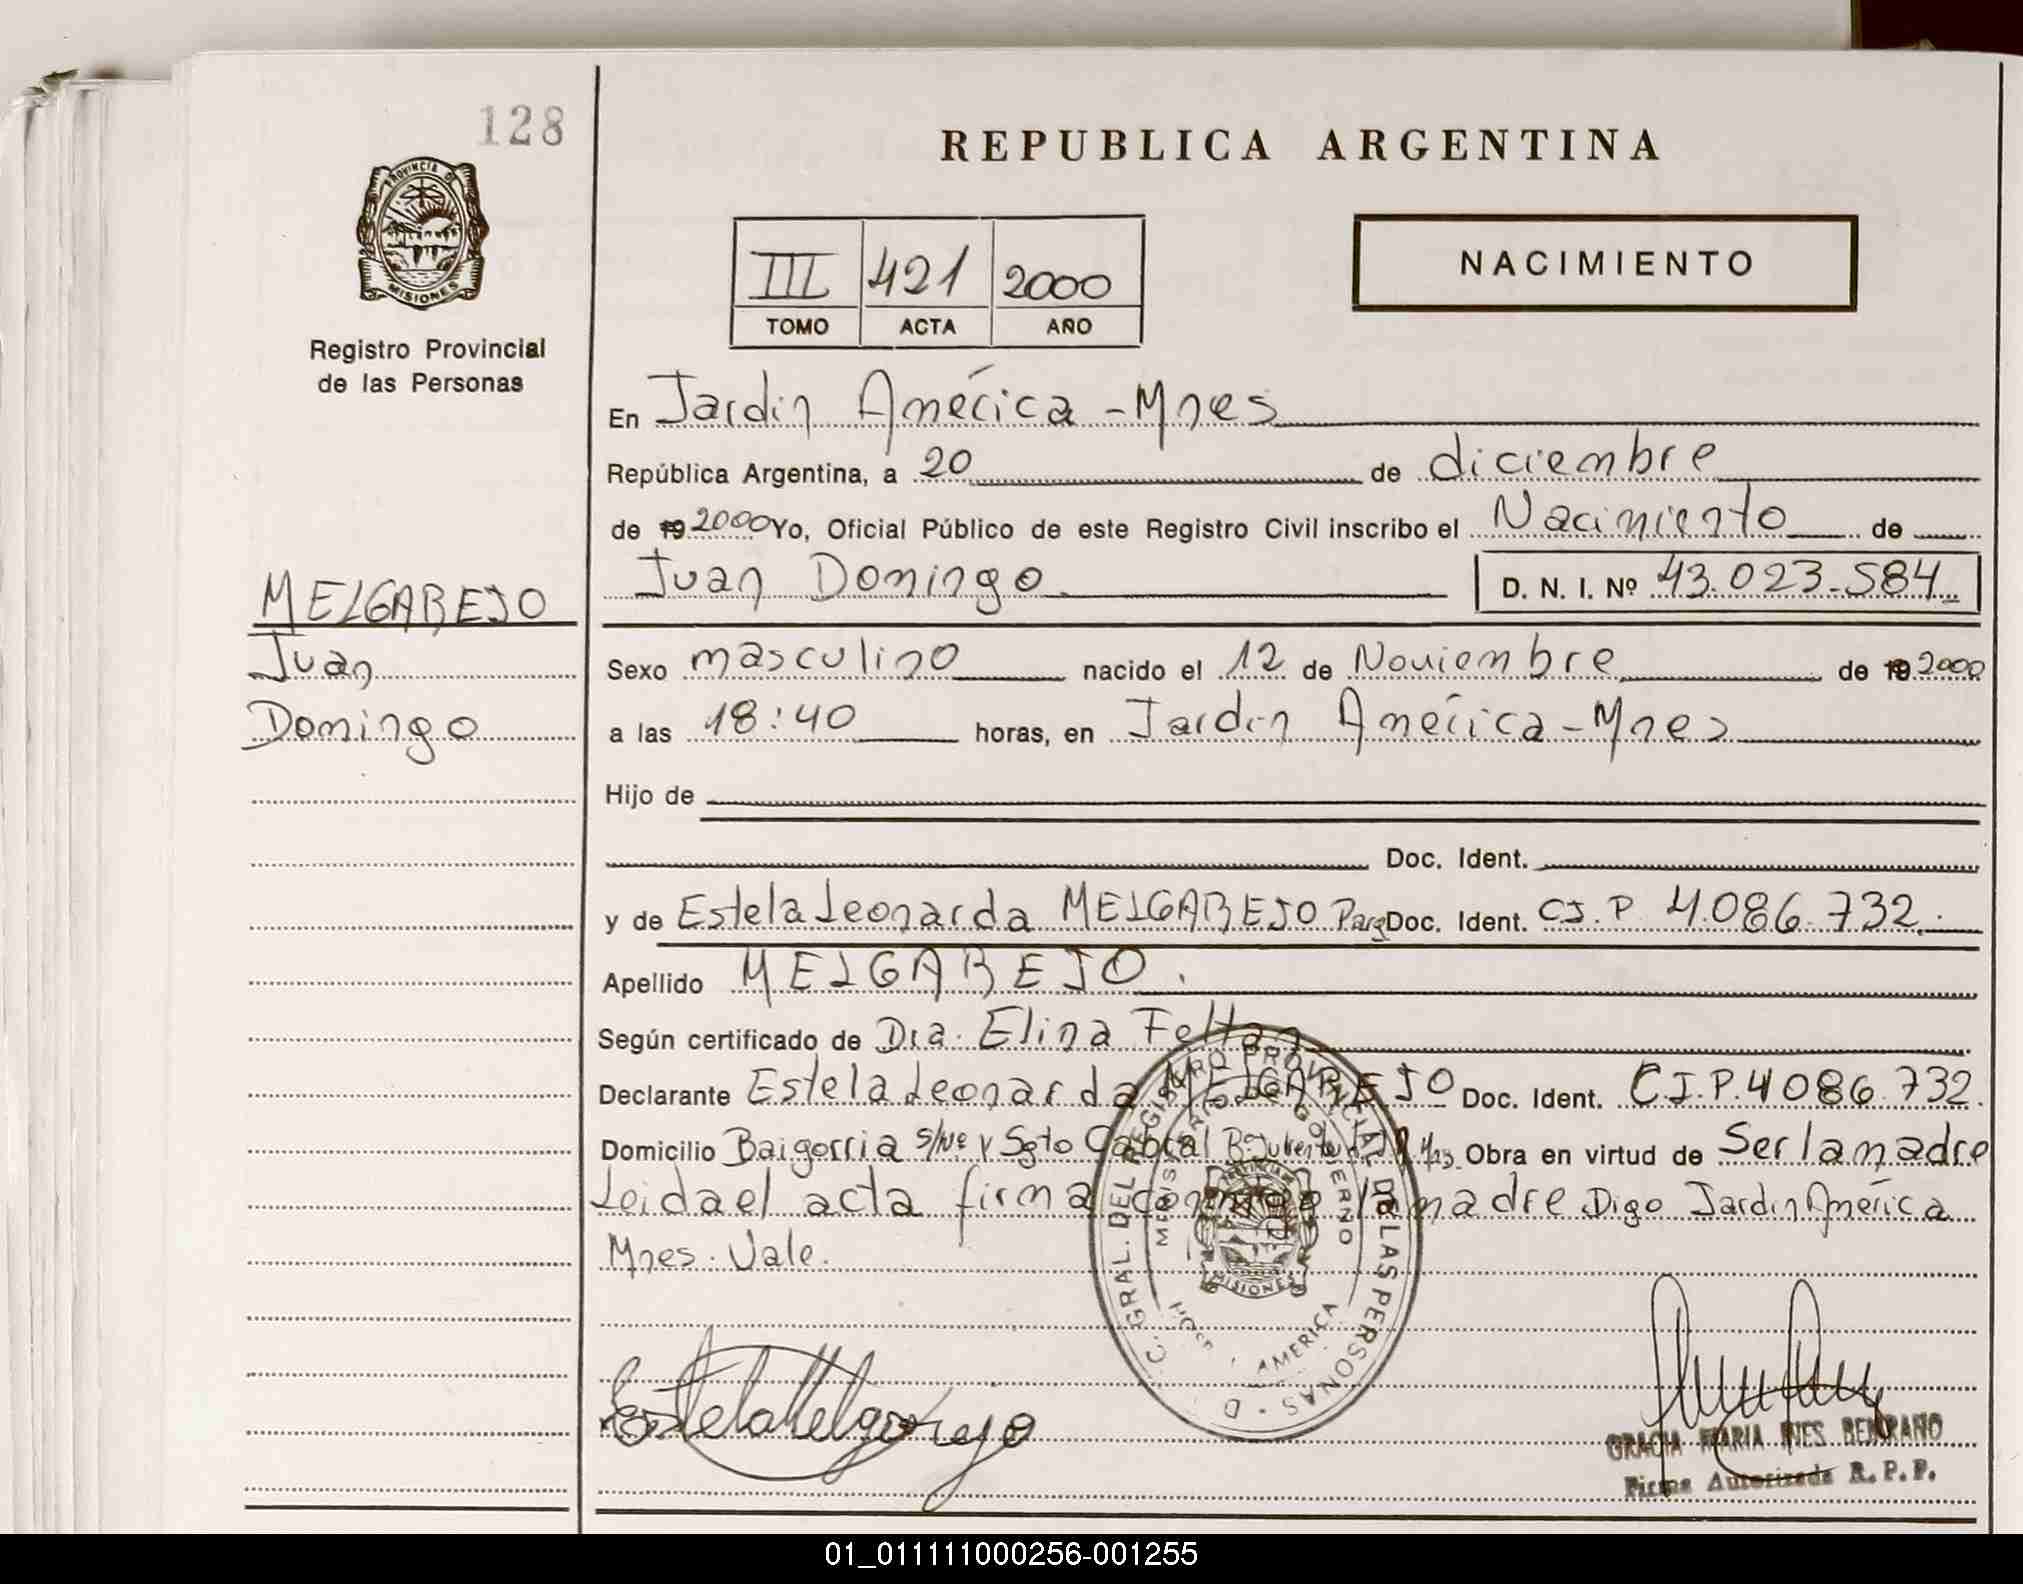 128
REPUBLICA ARGENTINA
PROVINCIA D
MISIONES
Registro Provincial
de las Personas
III 421 2000
TOMO ACTA AÑO
NACIMIENTO
En Jardin América - Mnes
República Argentina, a 20 de diciembre
de 19 2000 Yo, Oficial Público de este Registro Civil inscribo el Nacimiento de
Juan Domingo D. N. I. Nº 43.023.584
MELGAREJO
Juan
Domingo
Sexo masculino nacido el 12 de Noviembre de 19 2000
a las 18:40 horas, en Jardin América - Mnes
Hijo de
Doc. Ident.
y de Estela Leonarda MELGAREJO Parg Doc. Ident. C.I.P 4.086.732.
Apellido MELGAREJO.
Según certificado de Dra. Elina Feltan
Declarante Estela Leonarda MELGAREJO Doc. Ident. C.I.P. 4086.732.
Domicilio Baigorria s/Nº y Sgto Cabral Bº Obra en virtud de Ser la madre
Leida el acta firma conmigo la madre Digo Jardin América
Mnes. Vale.
C. GRAL. DEL REGISTRO PROVINCIAL DE LAS PERSONAS
GOBIERNO
MISIONES
AMERICA
Estela Melgarejo
GRACIA MARIA INES BEJARANO
Firma Autorizada R. P. P.
01_011111000256-001255